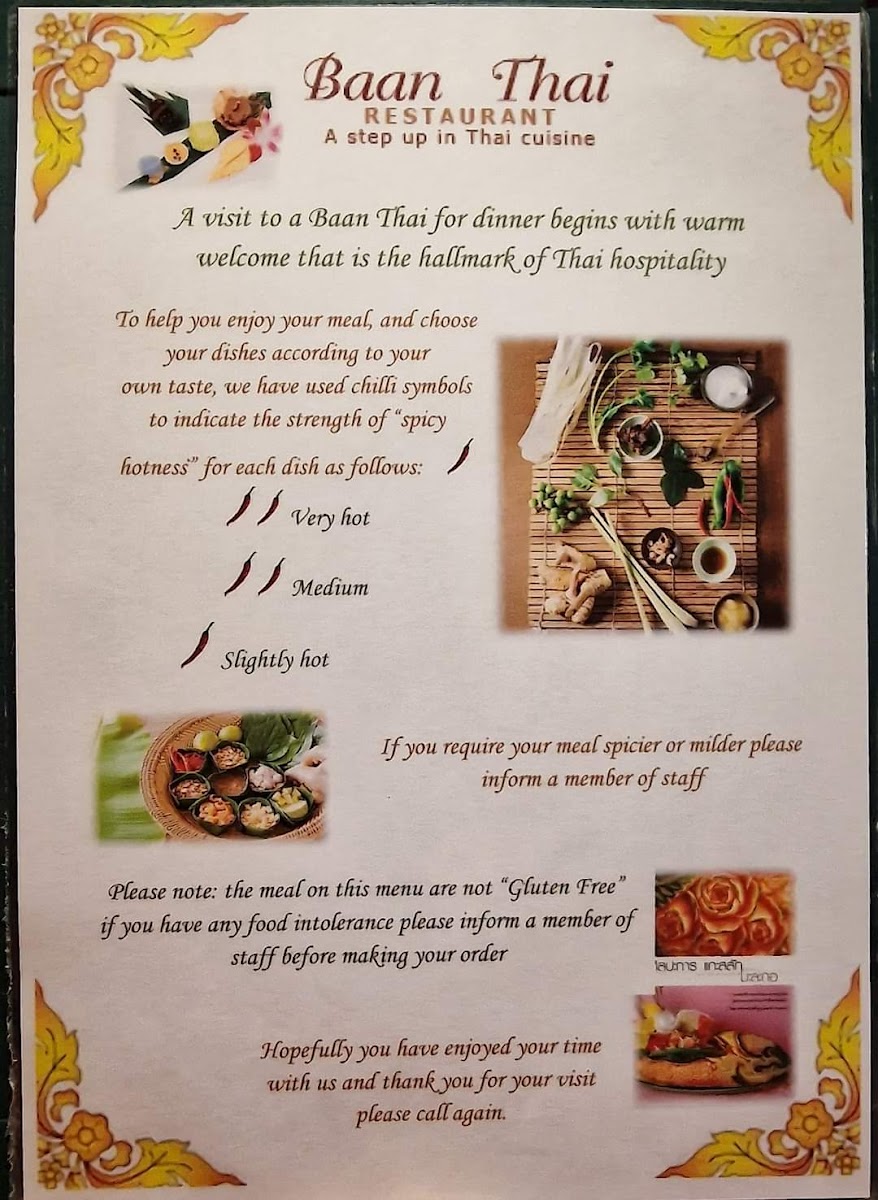 Baan Thai
RESTAURANT
A step up in Thai cuisine
A visit to a Baan Thai for dinner begins with warm
welcome that is the hallmark of Thai hospitality
To help you enjoy your meal, and choose
your dishes according to your
own taste, we have used chilli symbols
to indicate the strength of “spicy
hotness” for each dish as follows:
Very hot
Medium
Slightly hot
If you require your meal spicier or milder please
inform a member of staff
Please note: the meal on this menu are not “Gluten Free”
if you have any food intolerance please inform a member of
staff before making your order
แกะสลัก
มะละกอ
Hopefully you have enjoyed your time
with us and thank you for your visit
please call again.